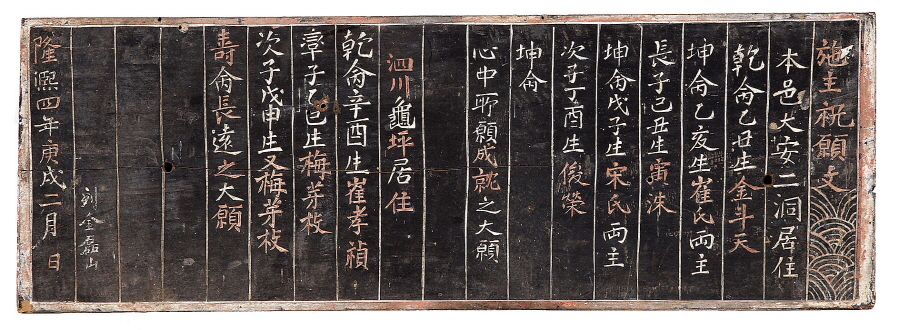 施主祝願文
本邑大安二洞居住
乾命乙丑生金斗天
坤命乙亥生崔氏両主
長子己丑生洙
坤命戊子生宋氏両主
次子丁酉生俊榮
坤命
心中所願成就之大願
泗川龜坪居住
乾命辛酉生崔孝禎
率子乙巳生梅芽枝
次子戊申生又梅芽枝
壽命長遠之大願
刻金磊山
隆熙四年庚戌二月 日